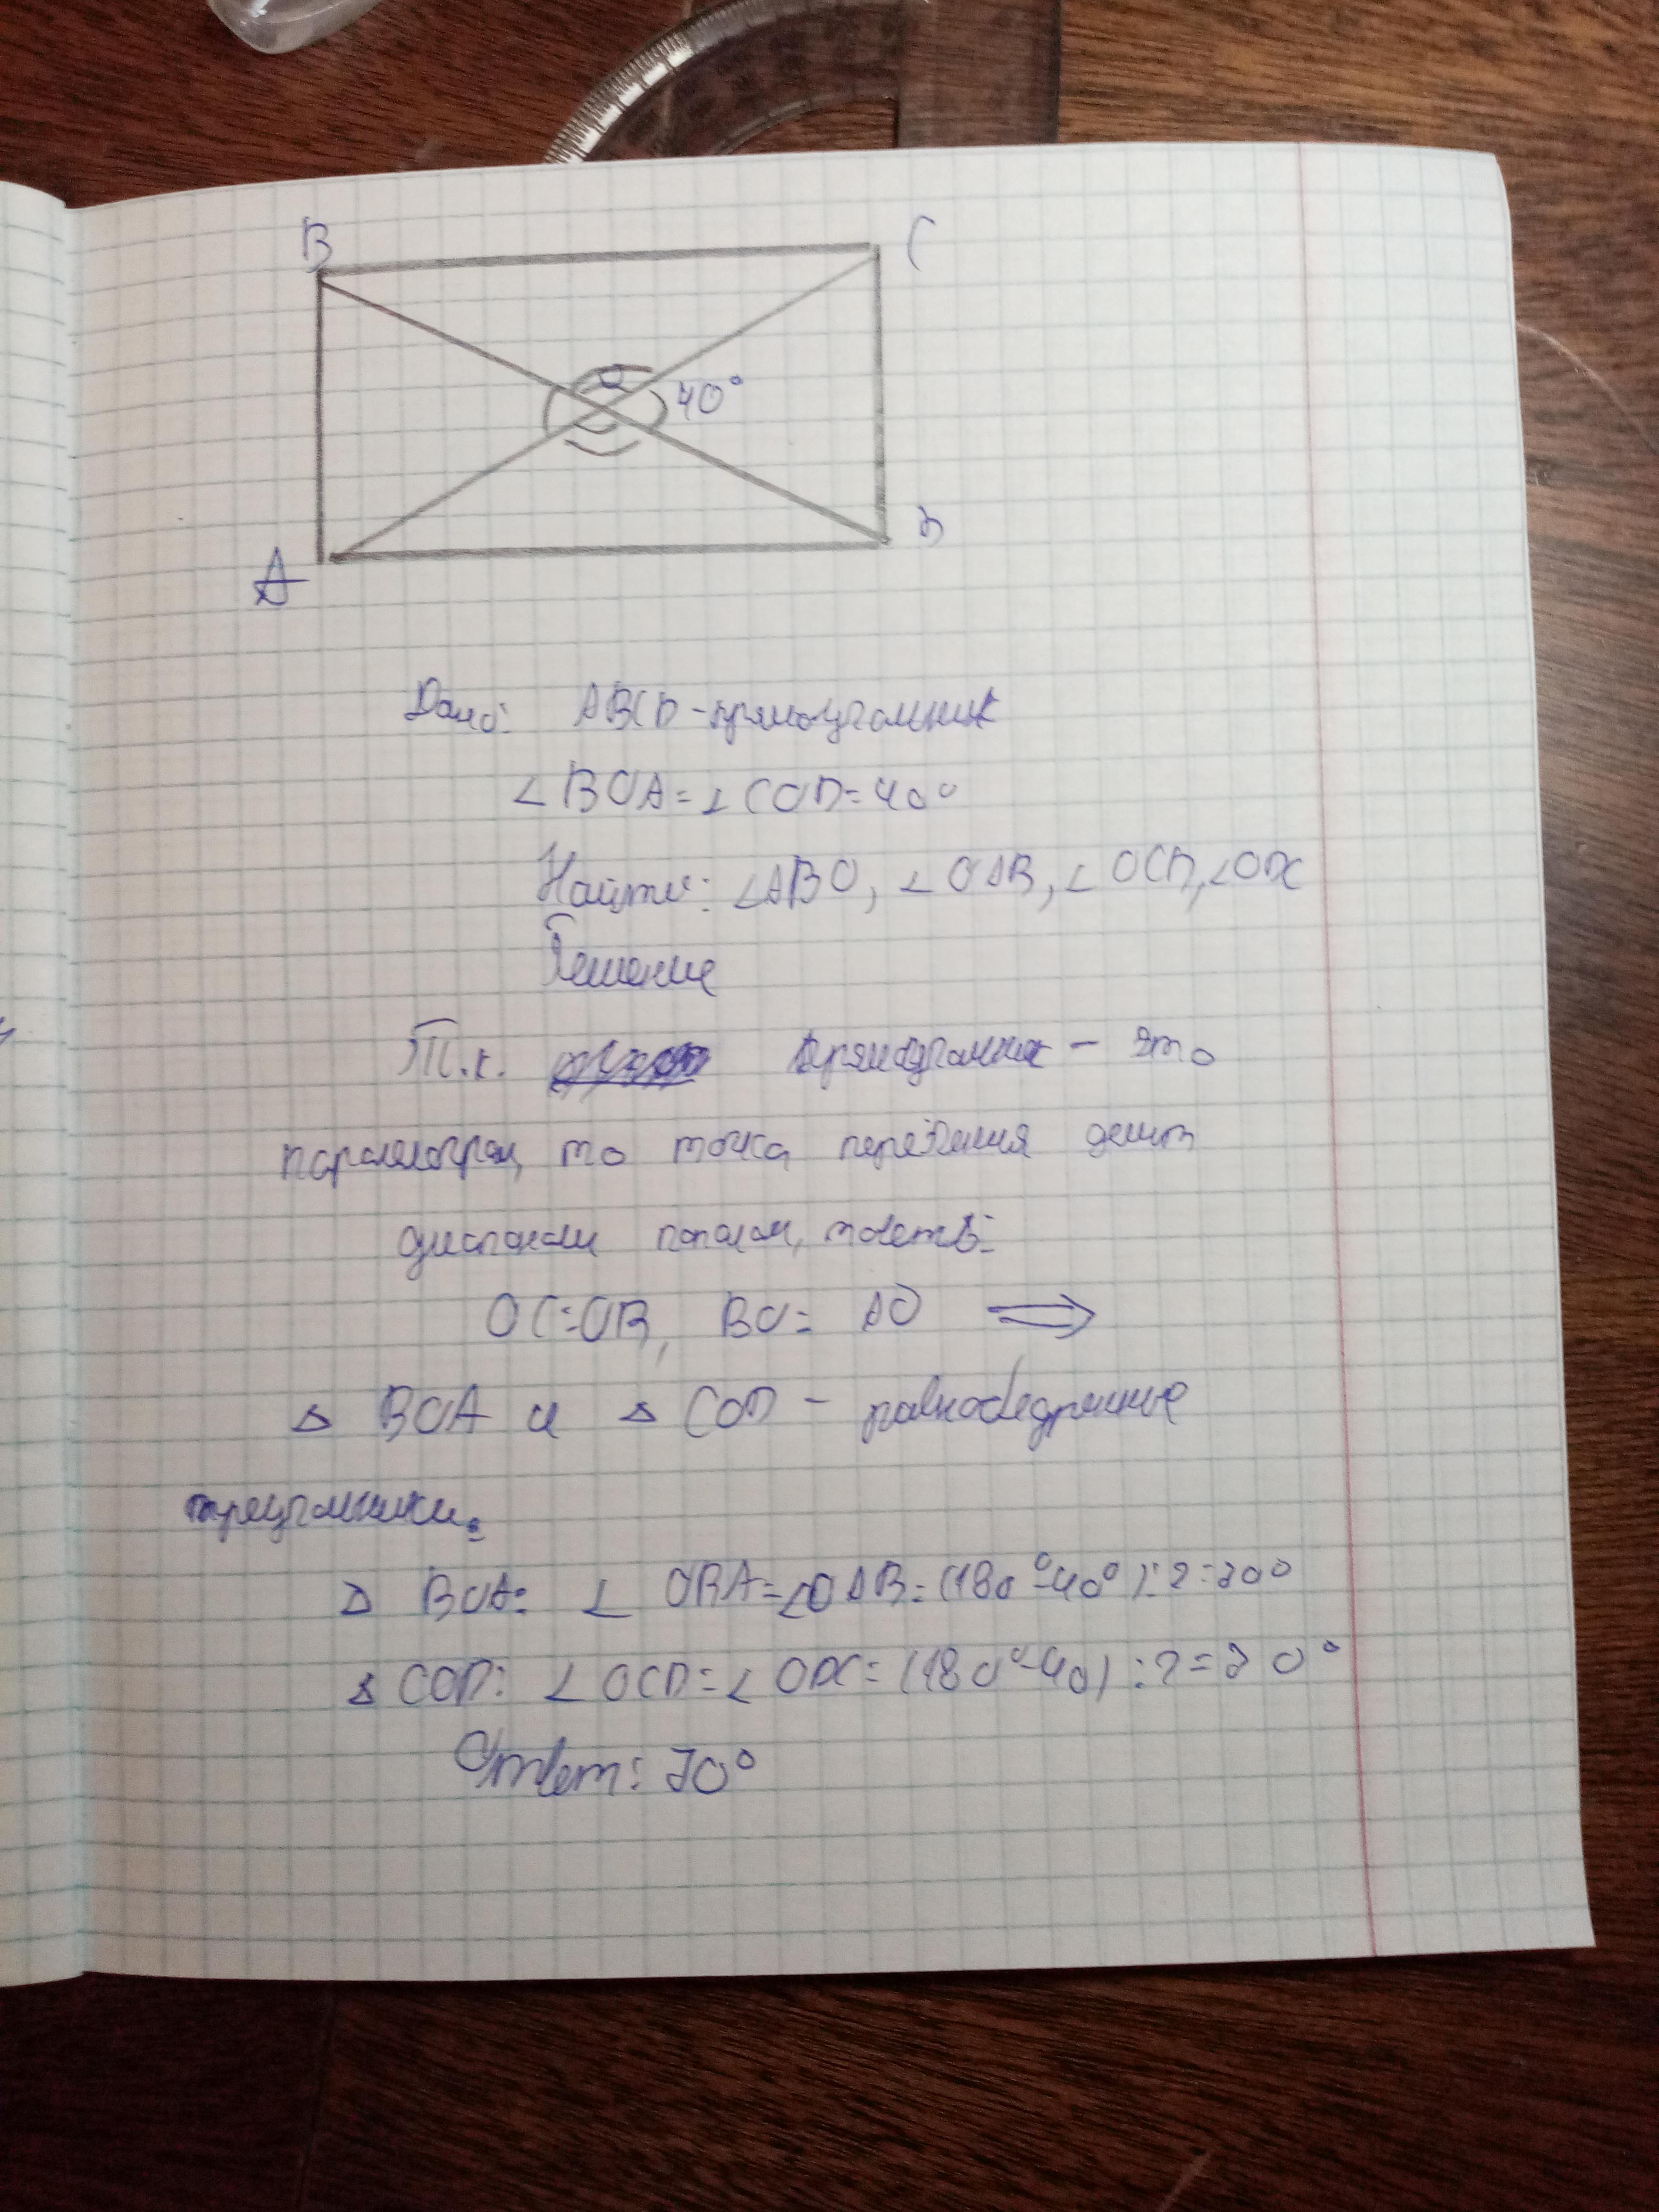 B
C
O
40°
D
A
Дано: ABCD - прямоугольник
∠BOA = ∠COD = 40°
Найти: ∠ABO, ∠OAB, ∠OCD, ∠ODC
Решение
Т.к. прямоугольник - это
паралелограм, то точка делит
диагонали попалам,
OC = OB, BO = AO ⟹
△ BOA и △ COD - равнобедренные
треугольники.
△ BOA: ∠ OBA = ∠OAB = (180° - 40°) : 2 = 70°
△ COD: ∠ OCD = ∠ ODC = (180° - 40) : 2 = 70°
Ответ: 70°